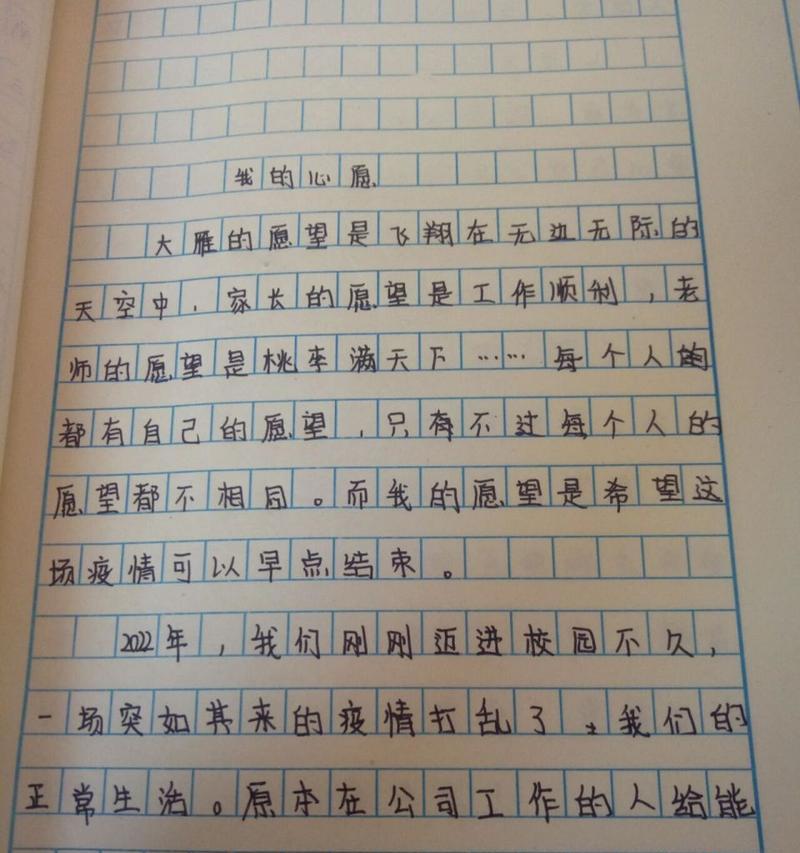 我的心愿
大雁的愿望是飞翔在无边无际的
天空中，家长的愿望是工作顺利，老
师的愿望是桃李满天下……每个人的
都有自己的愿望，只有不过每个人的
愿望都不相同。而我的愿望是希望这
场疫情可以早点结束。
2022年，我们刚刚迈进校园不久，
一场突如其来的疫情打乱了我们的
正常生活。原本在公司工作的人给能